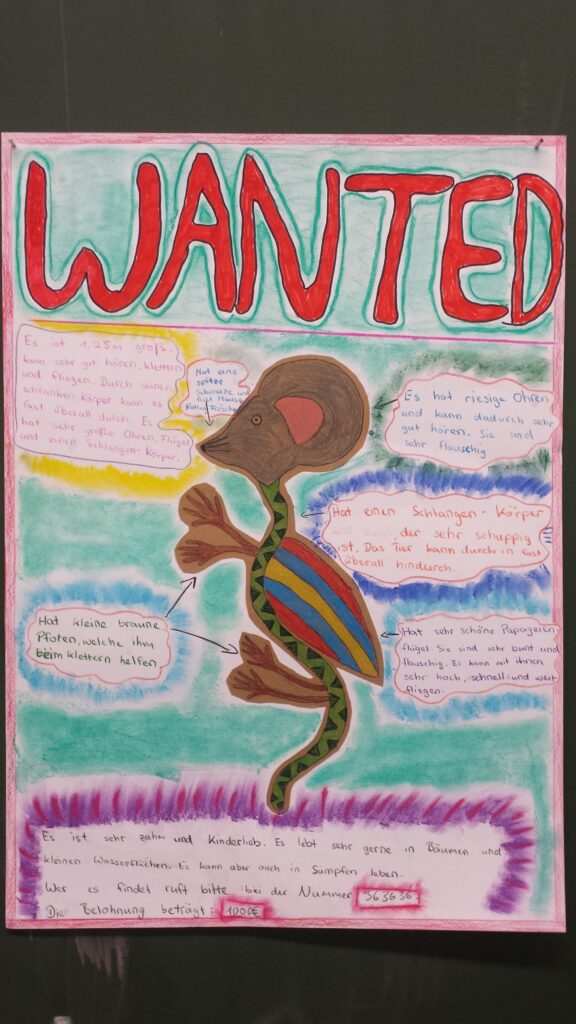 WANTED
Es ist 1,25m groß.
kann sehr gut hören, klettern
und fliegen. Durch seinen
schlanken Körper kann es
fast überall durch. Es
hat sehr große Ohren, Flügel
und einen Schlangen-Körper.
Hat eine
spitze
Schnauze und
frisst Mäuse
Frösche
Es hat riesige Ohren
und kann dadurch sehr
gut hören. Sie sind
sehr flauschig
Hat einen Schlangen-Körper
der sehr schuppig
ist. Das Tier kann durch in fast
überall hindurch.
Hat kleine braune
Pfoten, welche ihm
beim klettern helfen.
Hat sehr schöne Papageien-
flügel Sie sind sehr bunt und
flauschig. Es kann mit ihnen
sehr hoch, schnell und weit
fliegen.
Es ist sehr zahm und Kinderlieb. Es lebt sehr gerne in Bäumen und
kleinen Wasserflächen. Es kann aber auch in Sümpfen leben.
Wer es findet ruft bitte bei der Nummer 363636.
Die Belohnung beträgt: 1000€